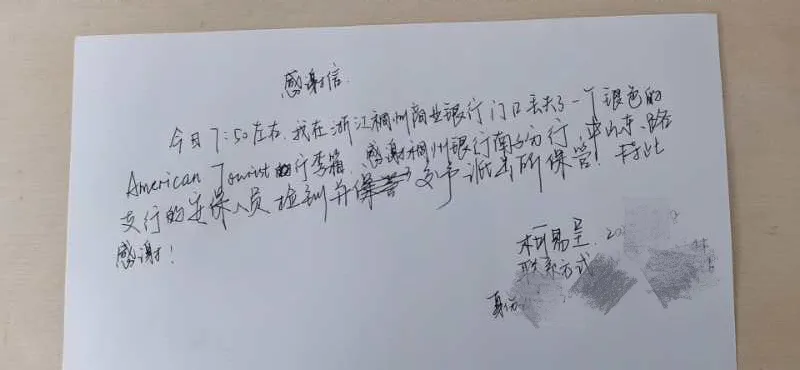 感谢信
今日7:50左右,我在浙江稠州商业银行门口丢失了一个银色的
American Tourist的行李箱,感谢稠州银行南京分行 中山东路
支行的安保人员捡到并交予派出所保管!特此
感谢!
柯易呈. 20
联系方式
身份